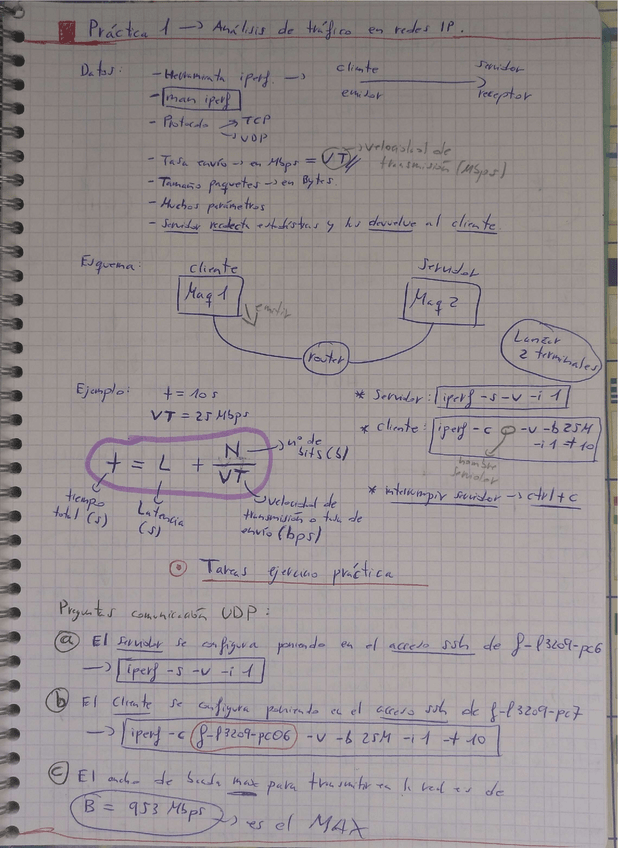 Práctica 1 → Análisis de tráfico en redes IP.
Datos:
- Herramienta iperf. →
cliente
servidor
emisor
receptor
- man iperf
- Protocolo → TCP
→ UDP
- Tasa envío → en Mbps = VT → velocidad de
transmisión (Mbps)
- Tamaño paquetes → en Bytes.
- Muchos parámetros
- Servidor recolecta estadísticas y las devuelve al cliente
Esquema:
cliente
Servidor
Maq 1
Maq 2
router
Lanzar
2 terminales
Ejemplo:
t = 10 s
VT = 25 Mbps
* Servidor: iperf -s -u -i 1
* Cliente: iperf -c -u -b 25M
-i 1 -t 10
nombre
servidor
t = L + N/VT
nº de
bits (b)
tiempo
total (s)
Latencia
(s)
velocidad de
transmisión o tasa de
envío (bps)
* interrumpir servidor → ctrl + c
Tareas ejercicio práctica
Preguntas comunicación UDP:
a) El servidor se configura poniendo en el acceso ssh de f-l3209-pc6
→ iperf -s -u -i 1
b) El cliente se configura poniendo en el acceso ssh de f-l3209-pc7
→ iperf -c f-l3209-pc06 -u -b 25M -i 1 -t 10
c) El ancho de banda max para transmitir en la red es de
B = 953 Mbps → es el MAX